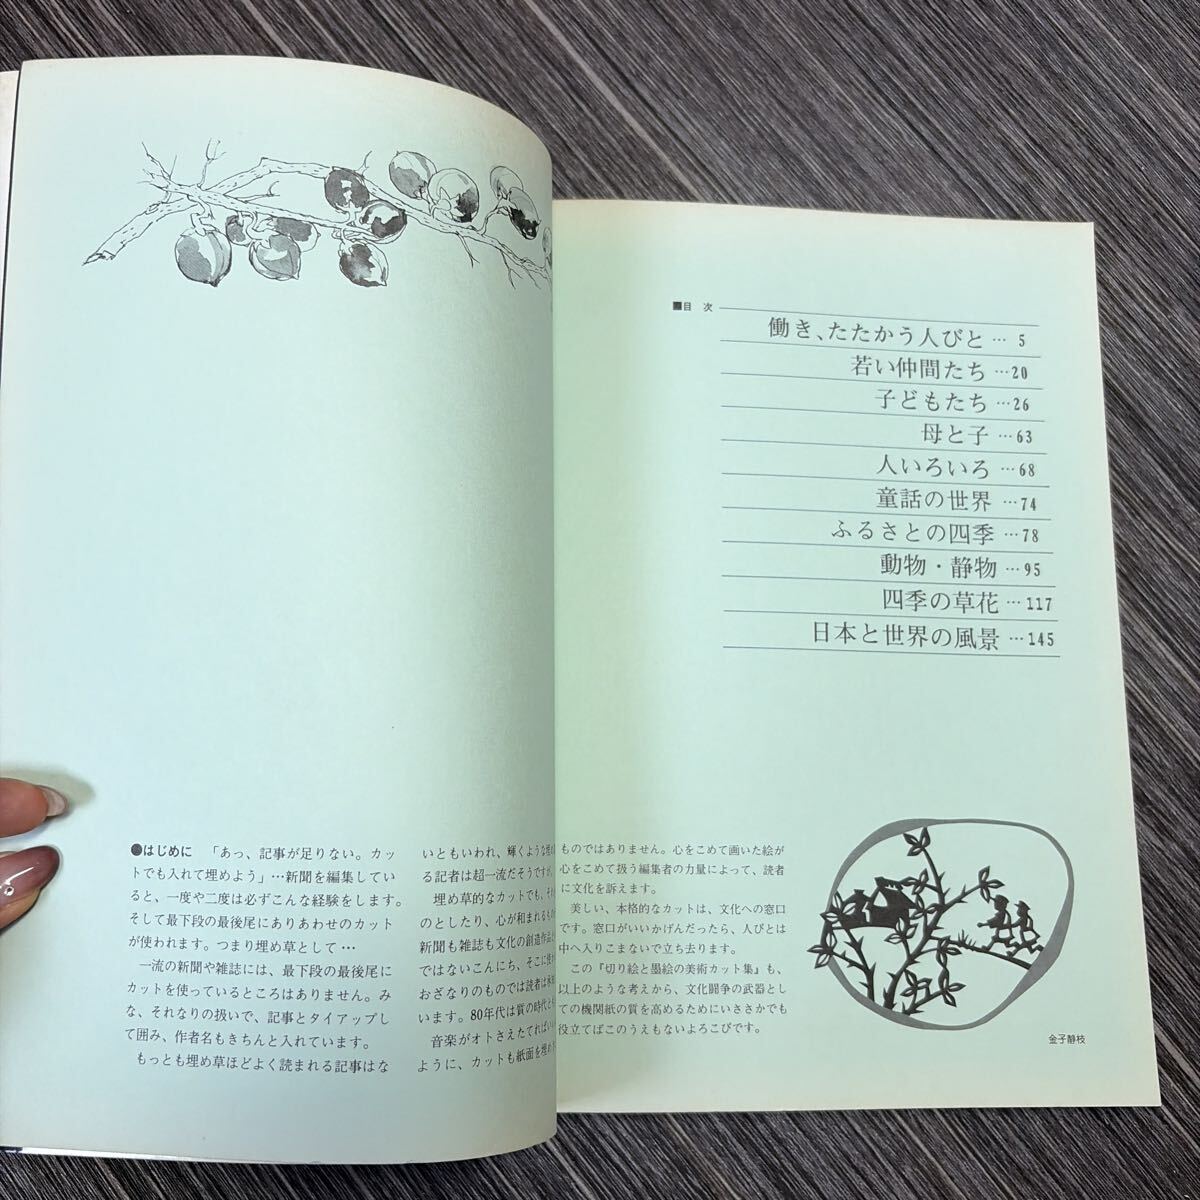 ●はじめに　「あっ、記事が足りない。カッ
トでも入れて埋めよう」…新聞を編集してい
ると、一度や二度は必ずこんな経験をします。
そして最下段の最後尾にありあわせのカット
が使われます。つまり埋め草として…
　一流の新聞や雑誌には、最下段の最後尾に
カットを使っているところはありません。み
な、それなりの扱いで、記事とタイアップし
て囲み、作者名もきちんと入れています。
　もっとも埋め草ほどよく読まれる記事はな
いともいわれ、輝くような埋め
る記者は超一流だそうですが、
　埋め草的なカットでも、それ
のとしたり、心が和まれるもの
新聞も雑誌も文化の創造作
ではないこんにち、そこに使わ
おざなりのものでは読者は承
います。80年代は質の時代と
　音楽がオトさえたてればいい
ように、カットも紙面を埋め
ものではありません。心をこめて画いた絵が
心をこめて扱う編集者の力量によって、読者
に文化を訴えます。
　美しい、本格的なカットは、文化への窓口
です。窓口がいいかげんだったら、人びとは
中へ入りこまないで立ち去ります。
　この『切り絵と墨絵の美術カット集』も、
以上のような考えから、文化闘争の武器とし
ての機関紙の質を高めるためにいささかでも
役立てばこのうえもないよろこびです。
■目　次
働き、たたかう人びと…5
若い仲間たち…20
子どもたち…26
母と子…63
人いろいろ…68
童話の世界…74
ふるさとの四季…78
動物・静物…95
四季の草花…117
日本と世界の風景…145
金子静枝